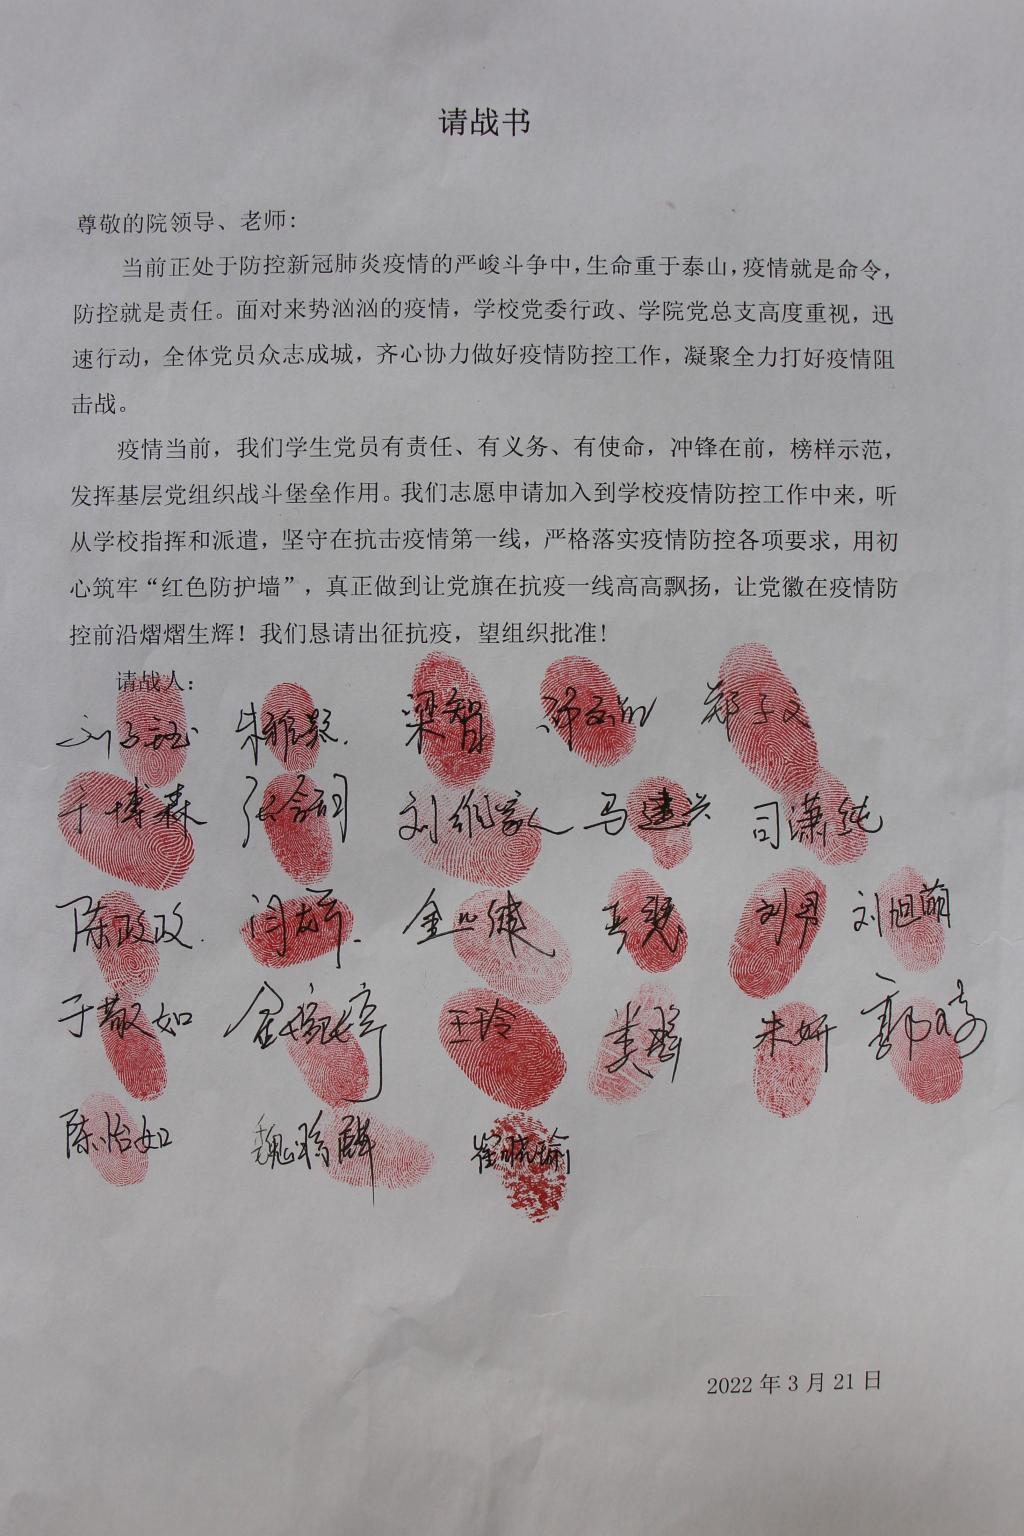 请战书
尊敬的院领导、老师:
当前正处于防控新冠肺炎疫情的严峻斗争中,生命重于泰山,疫情就是命令,
防控就是责任。面对来势汹汹的疫情,学校党委行政、学院党总支高度重视,迅
速行动,全体党员众志成城,齐心协力做好疫情防控工作,凝聚全力打好疫情阻
击战。
疫情当前,我们学生党员有责任、有义务、有使命,冲锋在前,榜样示范,
发挥基层党组织战斗堡垒作用。我们志愿申请加入到学校疫情防控工作中来,听
从学校指挥和派遣,坚守在抗击疫情第一线,严格落实疫情防控各项要求,用初
心筑牢“红色防护墙”,真正做到让党旗在抗疫一线高高飘扬,让党徽在疫情防
控前沿熠熠生辉!我们恳请出征抗疫,望组织批准!
请战人:
刘子钰 朱雅颢. 梁智 郑子文
于博森 刘维家 马建兴 司潇纯
陈政政. 刘男 刘旭萌
于敬如 王玲 娄馨 朱妍 郭琦
陈怡如 魏瑞麟 崔晓瑜
2022年3月21日